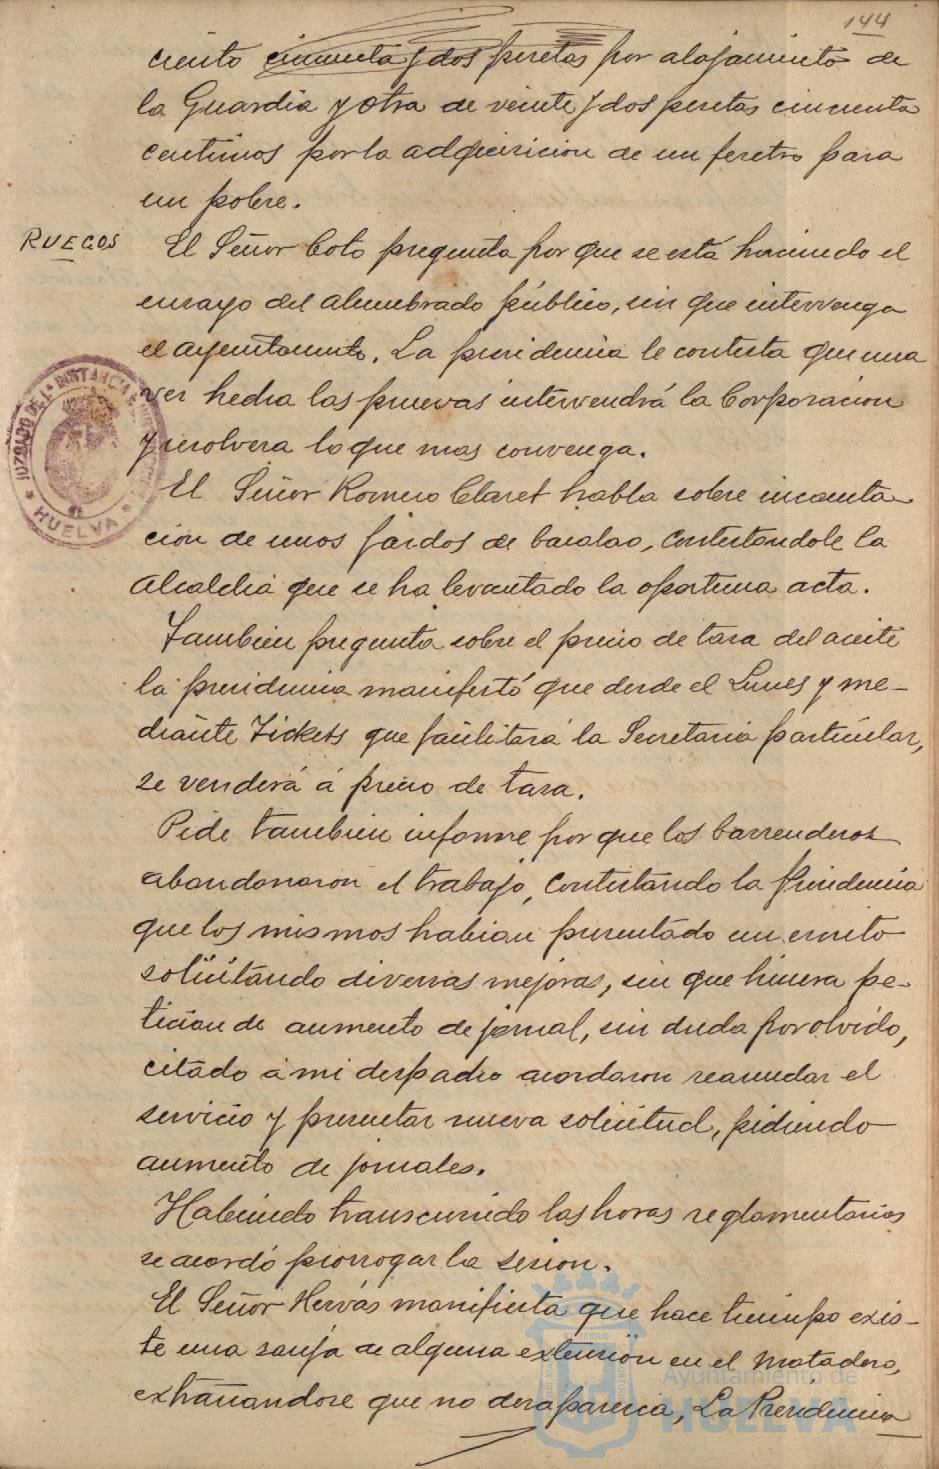 144
ciento cincuenta y dos pesetas por alojamiento de
la Guardia y otra de veinte y dos pesetas cincuenta
centimos por la adquiricion de un feretro para
un pobre.
RUEGOS
El Señor Coto pregunta por que se está haciendo el
ensayo del alumbrado público, sin que intervenga
el ayuntamiento. La presidencia le contesta que una
vez hecha las pruevas intervendrá la Corporacion
y resolvera lo que mas convenga.
JUZGADO DE 1ª INSTANCIA
HUELVA
El Señor Romero Claret habla sobre incauta
cion de unos fardos de bacalao, contestandole la
Alcaldia que se ha levantado la oportuna acta.
Tambien pregunta sobre el precio de tasa del aceite
la presidencia manifestó que desde el Lunes y me-
diante Tickets que facilitará la Secretaria particular,
se venderá á precio de tasa.
Pide tambien informe por que los barrenderos
abandonaron el trabajo, contestando la Presidencia
que los mismos habian presentado un escrito
solicitando diversas mejoras, sin que hiciera pe-
ticion de aumento de jornal, sin duda por olvido,
citado á mi despacho acordaron reanudar el
servicio y presentar nueva solicitud, pidiendo
aumento de jornales.
Habiendo transcurrido las horas reglamentarias
se acordó prorrogar la sesion.
El Señor Hervás manifiesta que hace tiempo exis-
te una zanja de alguna extensión en el Matadero,
extrañandose que no desaparezca, La Presidencia
Ayuntamiento de
HUELVA